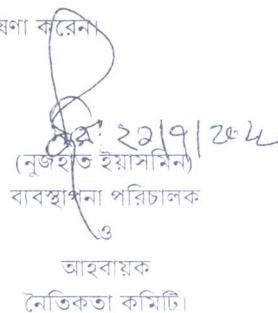 ষণা করেন।
(নুজহাত ইয়াসমিন)
ব্যবস্থাপনা পরিচালক
ও
আহবায়ক
নৈতিকতা কমিটি।